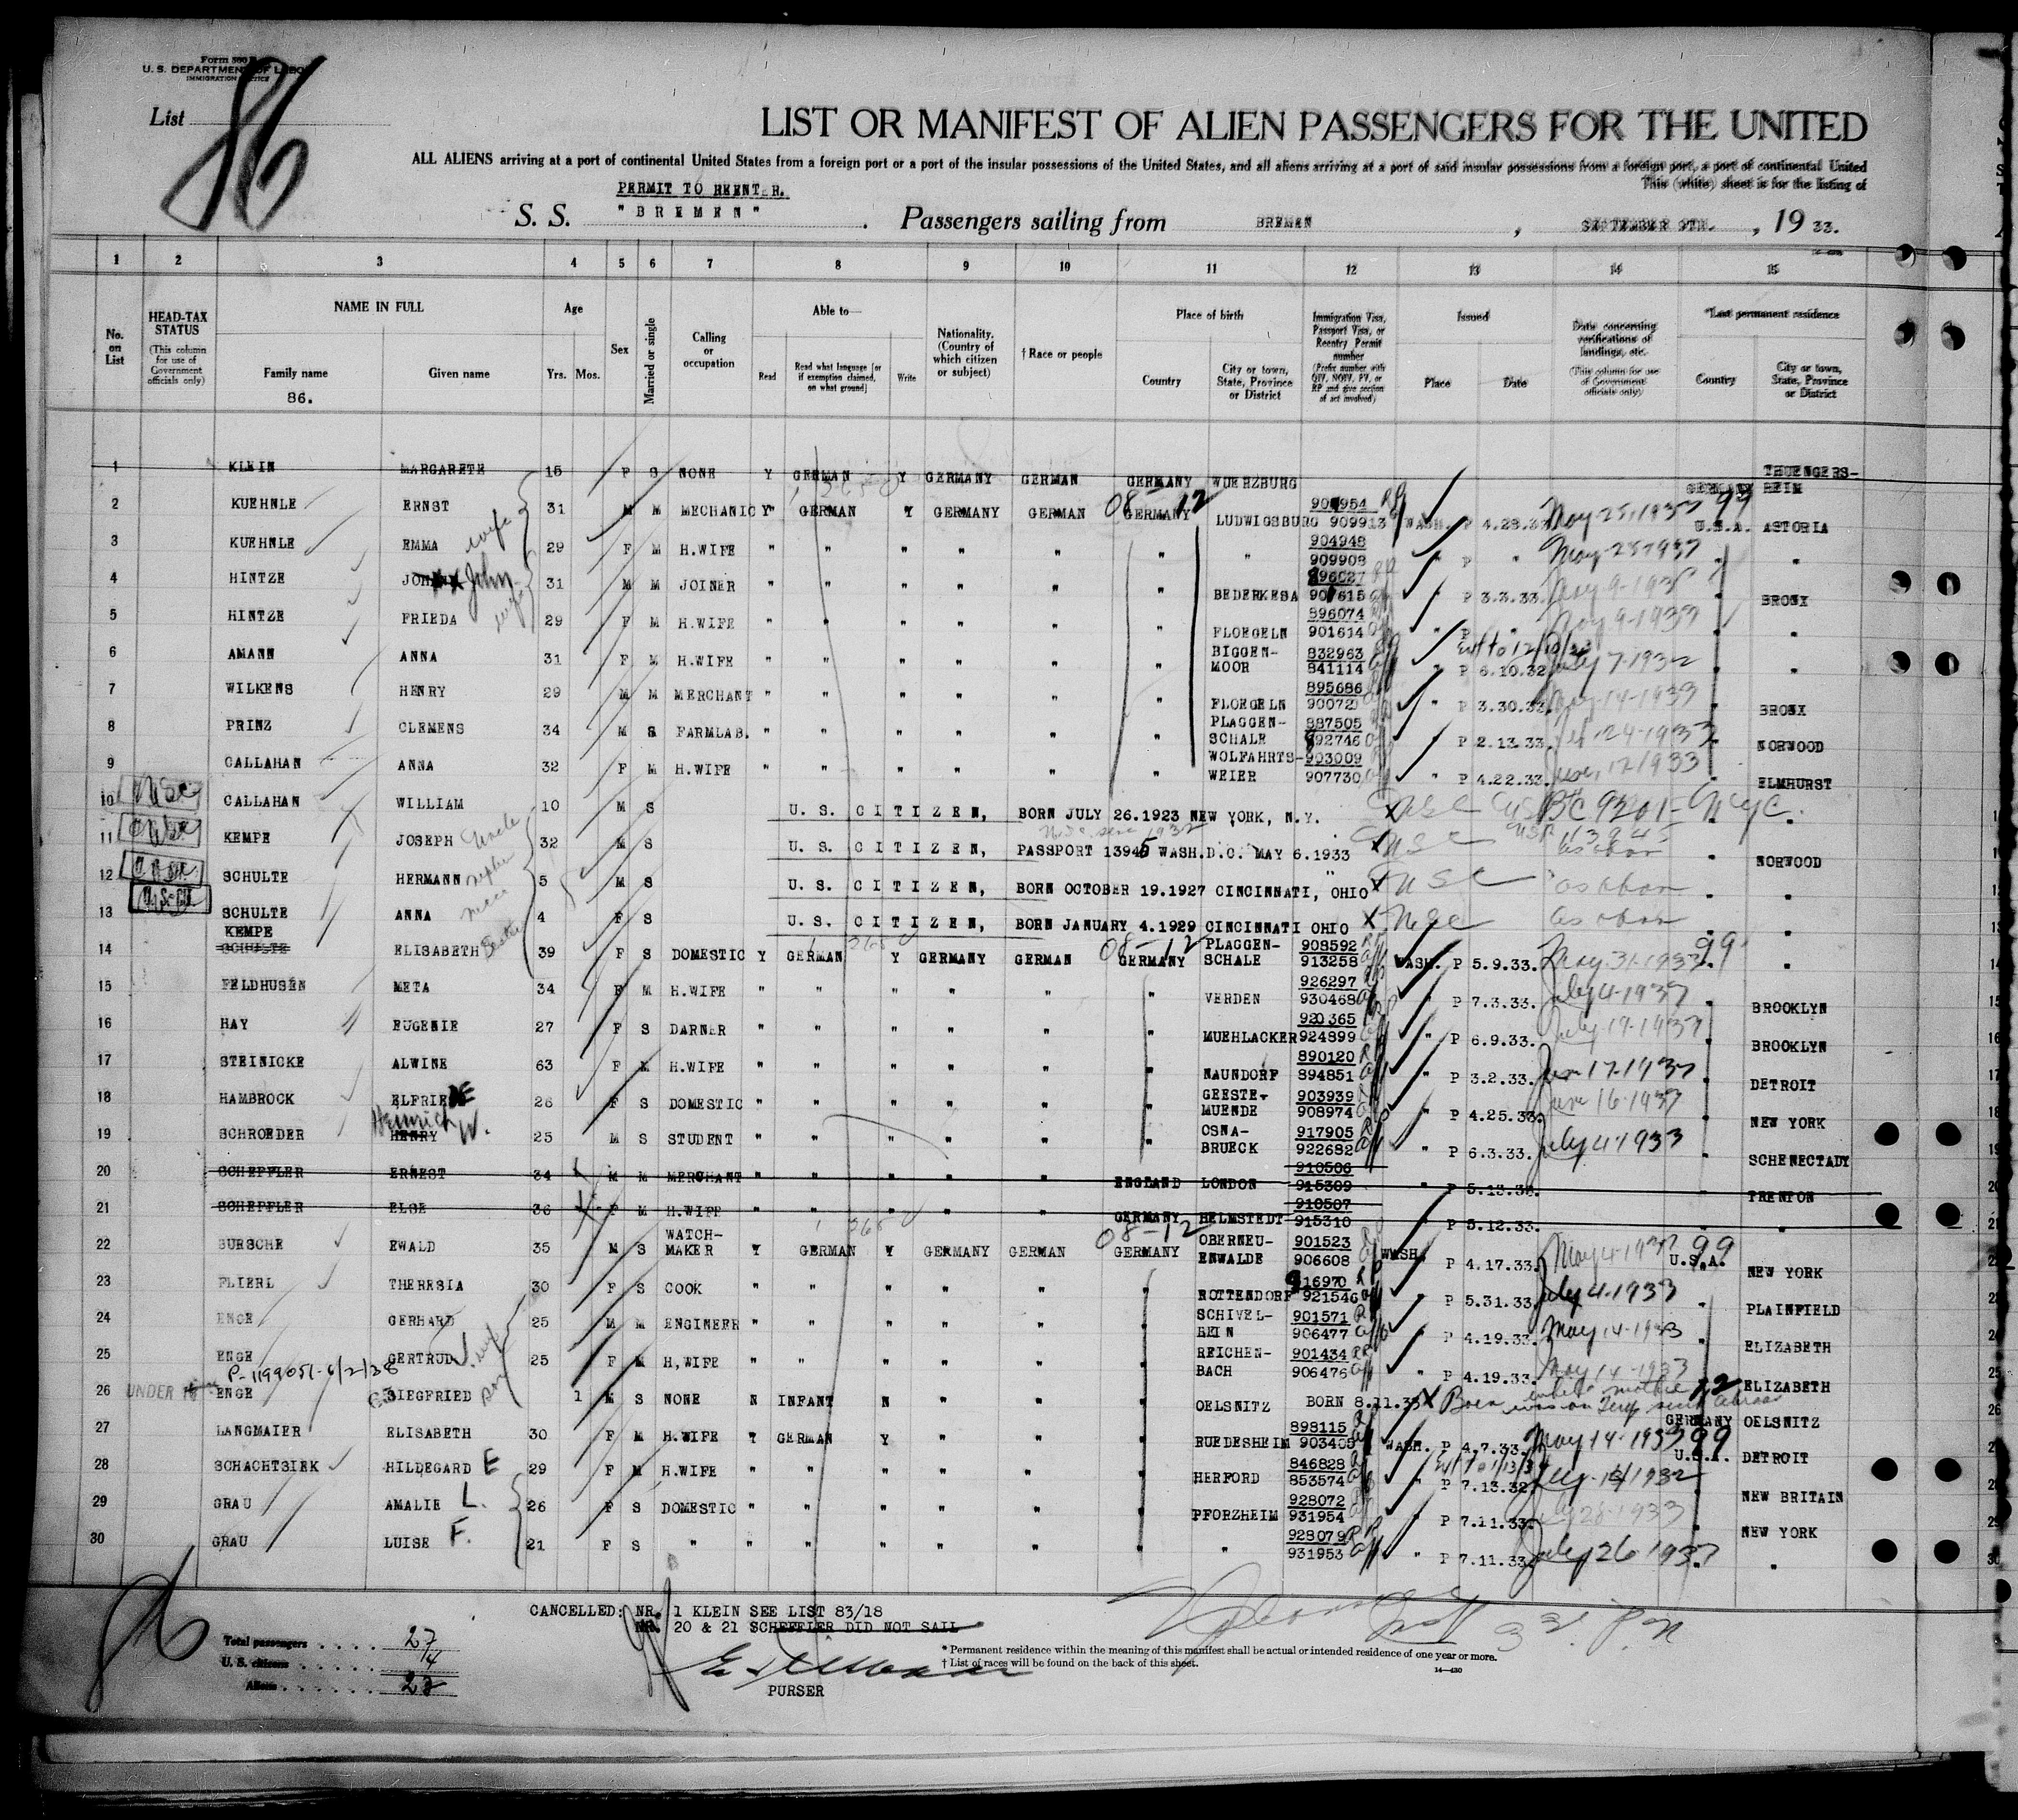 Form 500
U. S. DEPARTMENT OF LABOR
IMMIGRATION SERVICE
List 86
LIST OR MANIFEST OF ALIEN PASSENGERS FOR THE UNITED
ALL ALIENS arriving at a port of continental United States from a foreign port or a port of the insular possessions of the United States, and all aliens arriving at a port of said insular possessions from a foreign port, a port of continental United
This (white) sheet is for the listing of
PERMIT TO REENTER.
S. S. "BREMEN". Passengers sailing from BREMEN, SEPTEMBER 9TH., 19 33.
1 2 3 4 5 6 7 8 9 10 11 12 13 14 15
No. on List
HEAD-TAX STATUS (This column for use of Government officials only)
NAME IN FULL Family name 86. Given name
Age Yrs. Mos.
Sex
Married or single
Calling or occupation
Able to— Read Read what language [or if exemption claimed, on what ground] Write
Nationality. (Country of which citizen or subject)
† Race or people
Place of birth Country City or town, State, Province or District
Immigration Visa, Passport Visa, or Reentry Permit number (Prefix number with QIV, NQIV, PV, or RP and give section of act involved)
Issued Place Date
Data concerning verifications of landings, etc. (This column for use of Government officials only)
*Last permanent residence Country City or town, State, Province or District
1 KLEIN MARGARETE 15 F S NONE Y GERMAN Y GERMANY GERMAN GERMANY WUERZBURG GERMANY THUENGERSHEIM
2 KUEHNLE ERNST 31 M M MECHANIC Y GERMAN Y GERMANY GERMAN GERMANY 08-12 LUDWIGSBURG 904954 909913 WASH. P 4.28.33 May-25-1933 99 U.S.A. ASTORIA
3 KUEHNLE EMMA wife 29 F M H.WIFE " " " " " " " 904948 909908 " P " May-25-1933
4 HINTZE John 31 M M JOINER " " " " " " BEDERKESA 896027 901615 " P 3.3.33. May-9-1933 " BRONX
5 HINTZE FRIEDA wife 29 F M H.WIFE " " " " " " FLOEGELN 896074 901614 " P " May 9-1933 " "
6 AMANN ANNA 31 F M H.WIFE " " " " " " BIGGEN-MOOR 832963 841114 " P 6.10.32 July 7-1932 " "
7 WILKENS HENRY 29 M M MERCHANT " " " " " " FLOEGELN 895686 " P 3.30.33. May-14-1933 " BRONX
8 PRINZ CLEMENS 34 M S FARMLAB. " " " " " " PLAGGEN-SCHALE 887505 892746 " P 2.13.33. " NORWOOD
9 CALLAHAN ANNA 32 F M H.WIFE " " " " " " WOLFAHRTS-WEIER 903009 907730 " P 4.22.33. " ELMHURST
10 USC CALLAHAN WILLIAM 10 M S U. S. CITIZEN, BORN JULY 26.1923 NEW YORK, N.Y. X USC
11 USC KEMPE JOSEPH Uncle 32 M S U. S. CITIZEN, PASSPORT 13945 WASH.D.C. MAY 6.1933 X USC USP 13945 " NORWOOD
12 USC SCHULTE HERMANN nephew 5 M S U. S. CITIZEN, BORN OCTOBER 19.1927 CINCINNATI, OHIO X USC as above " "
13 USC SCHULTE ANNA niece 4 F S U. S. CITIZEN, BORN JANUARY 4.1929 CINCINNATI OHIO X USC as above " "
14 KEMPE SCHULTE ELISABETH Sister 39 F S DOMESTIC Y GERMAN Y GERMANY GERMAN GERMANY 08-12 PLAGGEN-SCHALE 908592 913258 WASH. P 5.9.33. May-31-1933 99 " "
15 FELDHUSEN META 34 F M H.WIFE " " " " " " VERDEN 926297 930468 " P 7.3.33. July 4-1933 " BROOKLYN
16 HAY EUGENIE 27 F S DARNER " " " " " " MUEHLACKER 920365 924899 " P 6.9.33. July-19-1933 " BROOKLYN
17 STEINICKE ALWINE 63 F M H.WIFE " " " " " " NAUNDORF 890120 894851 " P 3.2.33. " DETROIT
18 HAMBROCK ELFRIEDE 26 F S DOMESTIC " " " " " " GEESTE-MUENDE 903939 908974 " P 4.25.33. June 16-1933 " NEW YORK
19 SCHROEDER HENRY Heinrich W. 25 M S STUDENT " " " " " " OSNA-BRUECK 917905 922682 " P 6.3.33. July 4-1933 " SCHENECTADY
20 SCHEFFLER ERNEST 34 M M MERCHANT " " " " " ENGLAND LONDON 910506 915309 " P " TRENTON
21 SCHEFFLER ELSE 36 F M H.WIFE " " " " " GERMANY HELMSTEDT 910507 915310 " P 5.12.33. " "
22 BURSCHE EWALD 35 M S WATCH-MAKER Y GERMAN Y GERMANY GERMAN GERMANY 08-12 OBERNEU-ENWALDE 901523 906608 WASH. P 4.17.33. May 4-1933 99 U.S.A. NEW YORK
23 FLIERL THERESIA 30 F S COOK " " " " " " ROTTENDORF 916970 921546 " P 5.31.33. July 4-1933 " PLAINFIELD
24 ENGE GERHARD 25 M M ENGINEER " " " " " " SCHIVEL-BEIN 901571 906477 " P 4.19.33. May 14-1933 " ELIZABETH
25 ENGE GERTRUD wife 25 F M H,WIFE " " " " " " REICHEN-BACH 901434 906476 " P 4.19.33. May 14-1933 " ELIZABETH
P-1199051-6/2/38
26 UNDER 16 ENGE SIEGFRIED son 1 M S NONE N INFANT N " " " OELSNITZ BORN 8.11.33 X Born while mother was on Temp visit abroad 12 GERMANY OELSNITZ
27 LANGMAIER ELISABETH 30 F M H.WIFE Y GERMAN Y " " " RUEDESHEIM 898115 903405 WASH. P 4.7.33. May 14-1933 99 U.S.A. DETROIT
28 SCHACHTSIEK HILDEGARD E 29 F M H.WIFE " " " " " " HERFORD 846828 853574 " P 7.13.32 " NEW BRITAIN
29 GRAU AMALIE L. 26 F S DOMESTIC " " " " " " PFORZHEIM 928072 931954 " P 7.11.33. " NEW YORK
30 GRAU LUISE F. 21 F S " " " " " " " " 928079 931953 " P 7.11.33. July 26-1933 " "
CANCELLED: NR. 1 KLEIN SEE LIST 83/18
NR. 20 & 21 SCHEFFLER DID NOT SAIL
86
Total passengers 27
U. S. citizens 4
Aliens 23
PURSER
* Permanent residence within the meaning of this manifest shall be actual or intended residence of one year or more.
† List of races will be found on the back of this sheet.
14—430